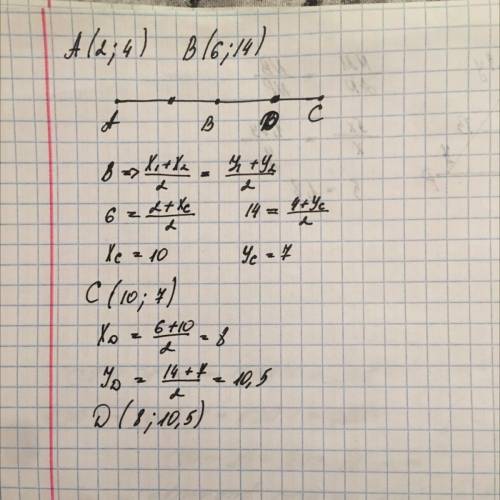 A(2;4) B(6;14)
A B D C
B => (x₁+x₂)/2 = (y₁+y₂)/2
6 = (2+xc)/2 14 = (4+yc)/2
xc = 10 yc = 7
C(10;7)
xD = (6+10)/2 = 8
yD = (14+7)/2 = 10,5
D(8;10,5)